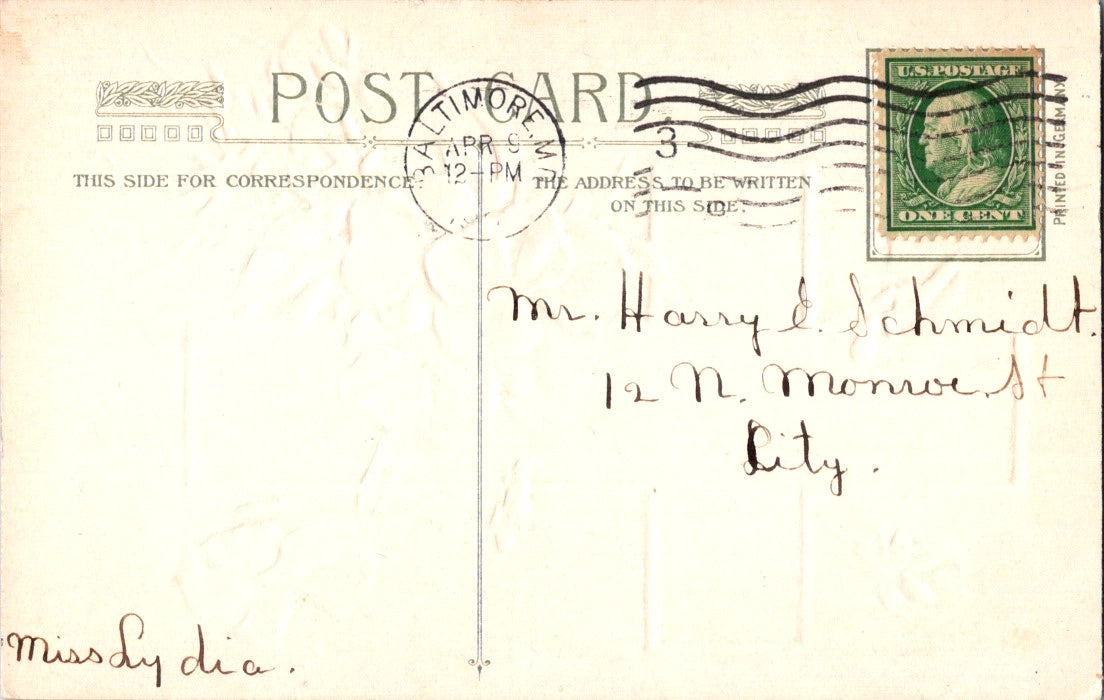 POST CARD
THIS SIDE FOR CORRESPONDENCE.
THE ADDRESS TO BE WRITTEN
ON THIS SIDE.
BALTIMORE, MD
APR 9
12-PM
3
U.S. POSTAGE
ONE CENT
PRINTED IN GERMANY
Mr. Harry E. Schmidt.
12 N. Monroe St
City.
Miss Lydia.